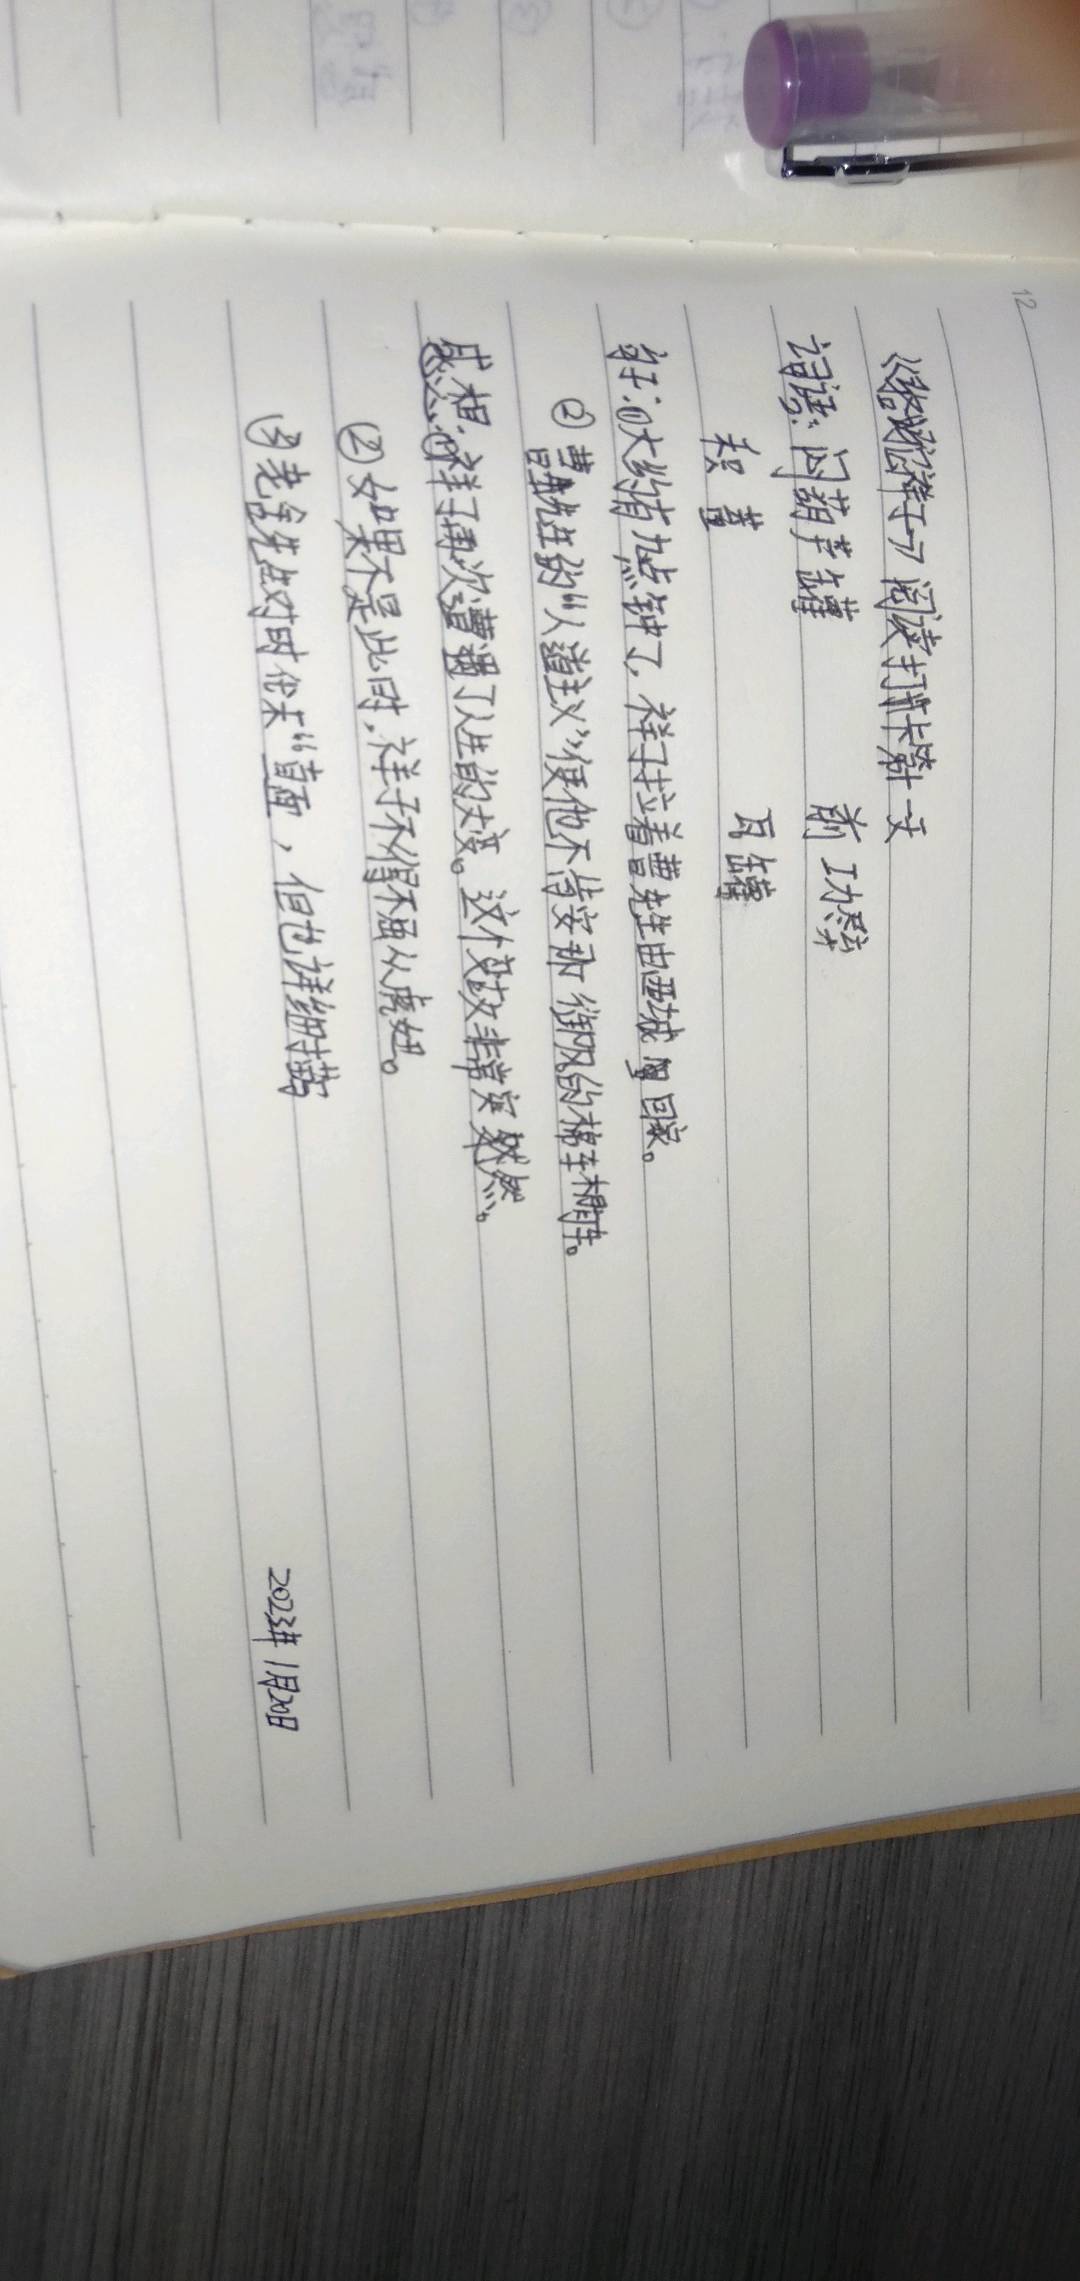 12
《骆驼祥子》阅读打卡第 天
词语：闷葫芦罐 前功尽弃
积蓄 瓦罐
句子：①大约有九点钟了，祥子拉着曹先生由西城回家。
②曹先生的“人道主义”使他不肯安那御风的棉车棚子。
感想：①祥子再次遭遇了人生的大变。这个变故非常突然。
②如果不是此时，祥子不得不屈从虎妞。
③老舍先生对时代未“直面，但也详细描写
2023年1月20日